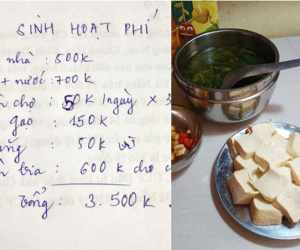 SINH HOẠT PHÍ
nhà : 500K
+ nước : 700K
chợ : 50K /ngày × 3
gạo : 150K
50K
bia : 600K cho
tổng : 3.500K